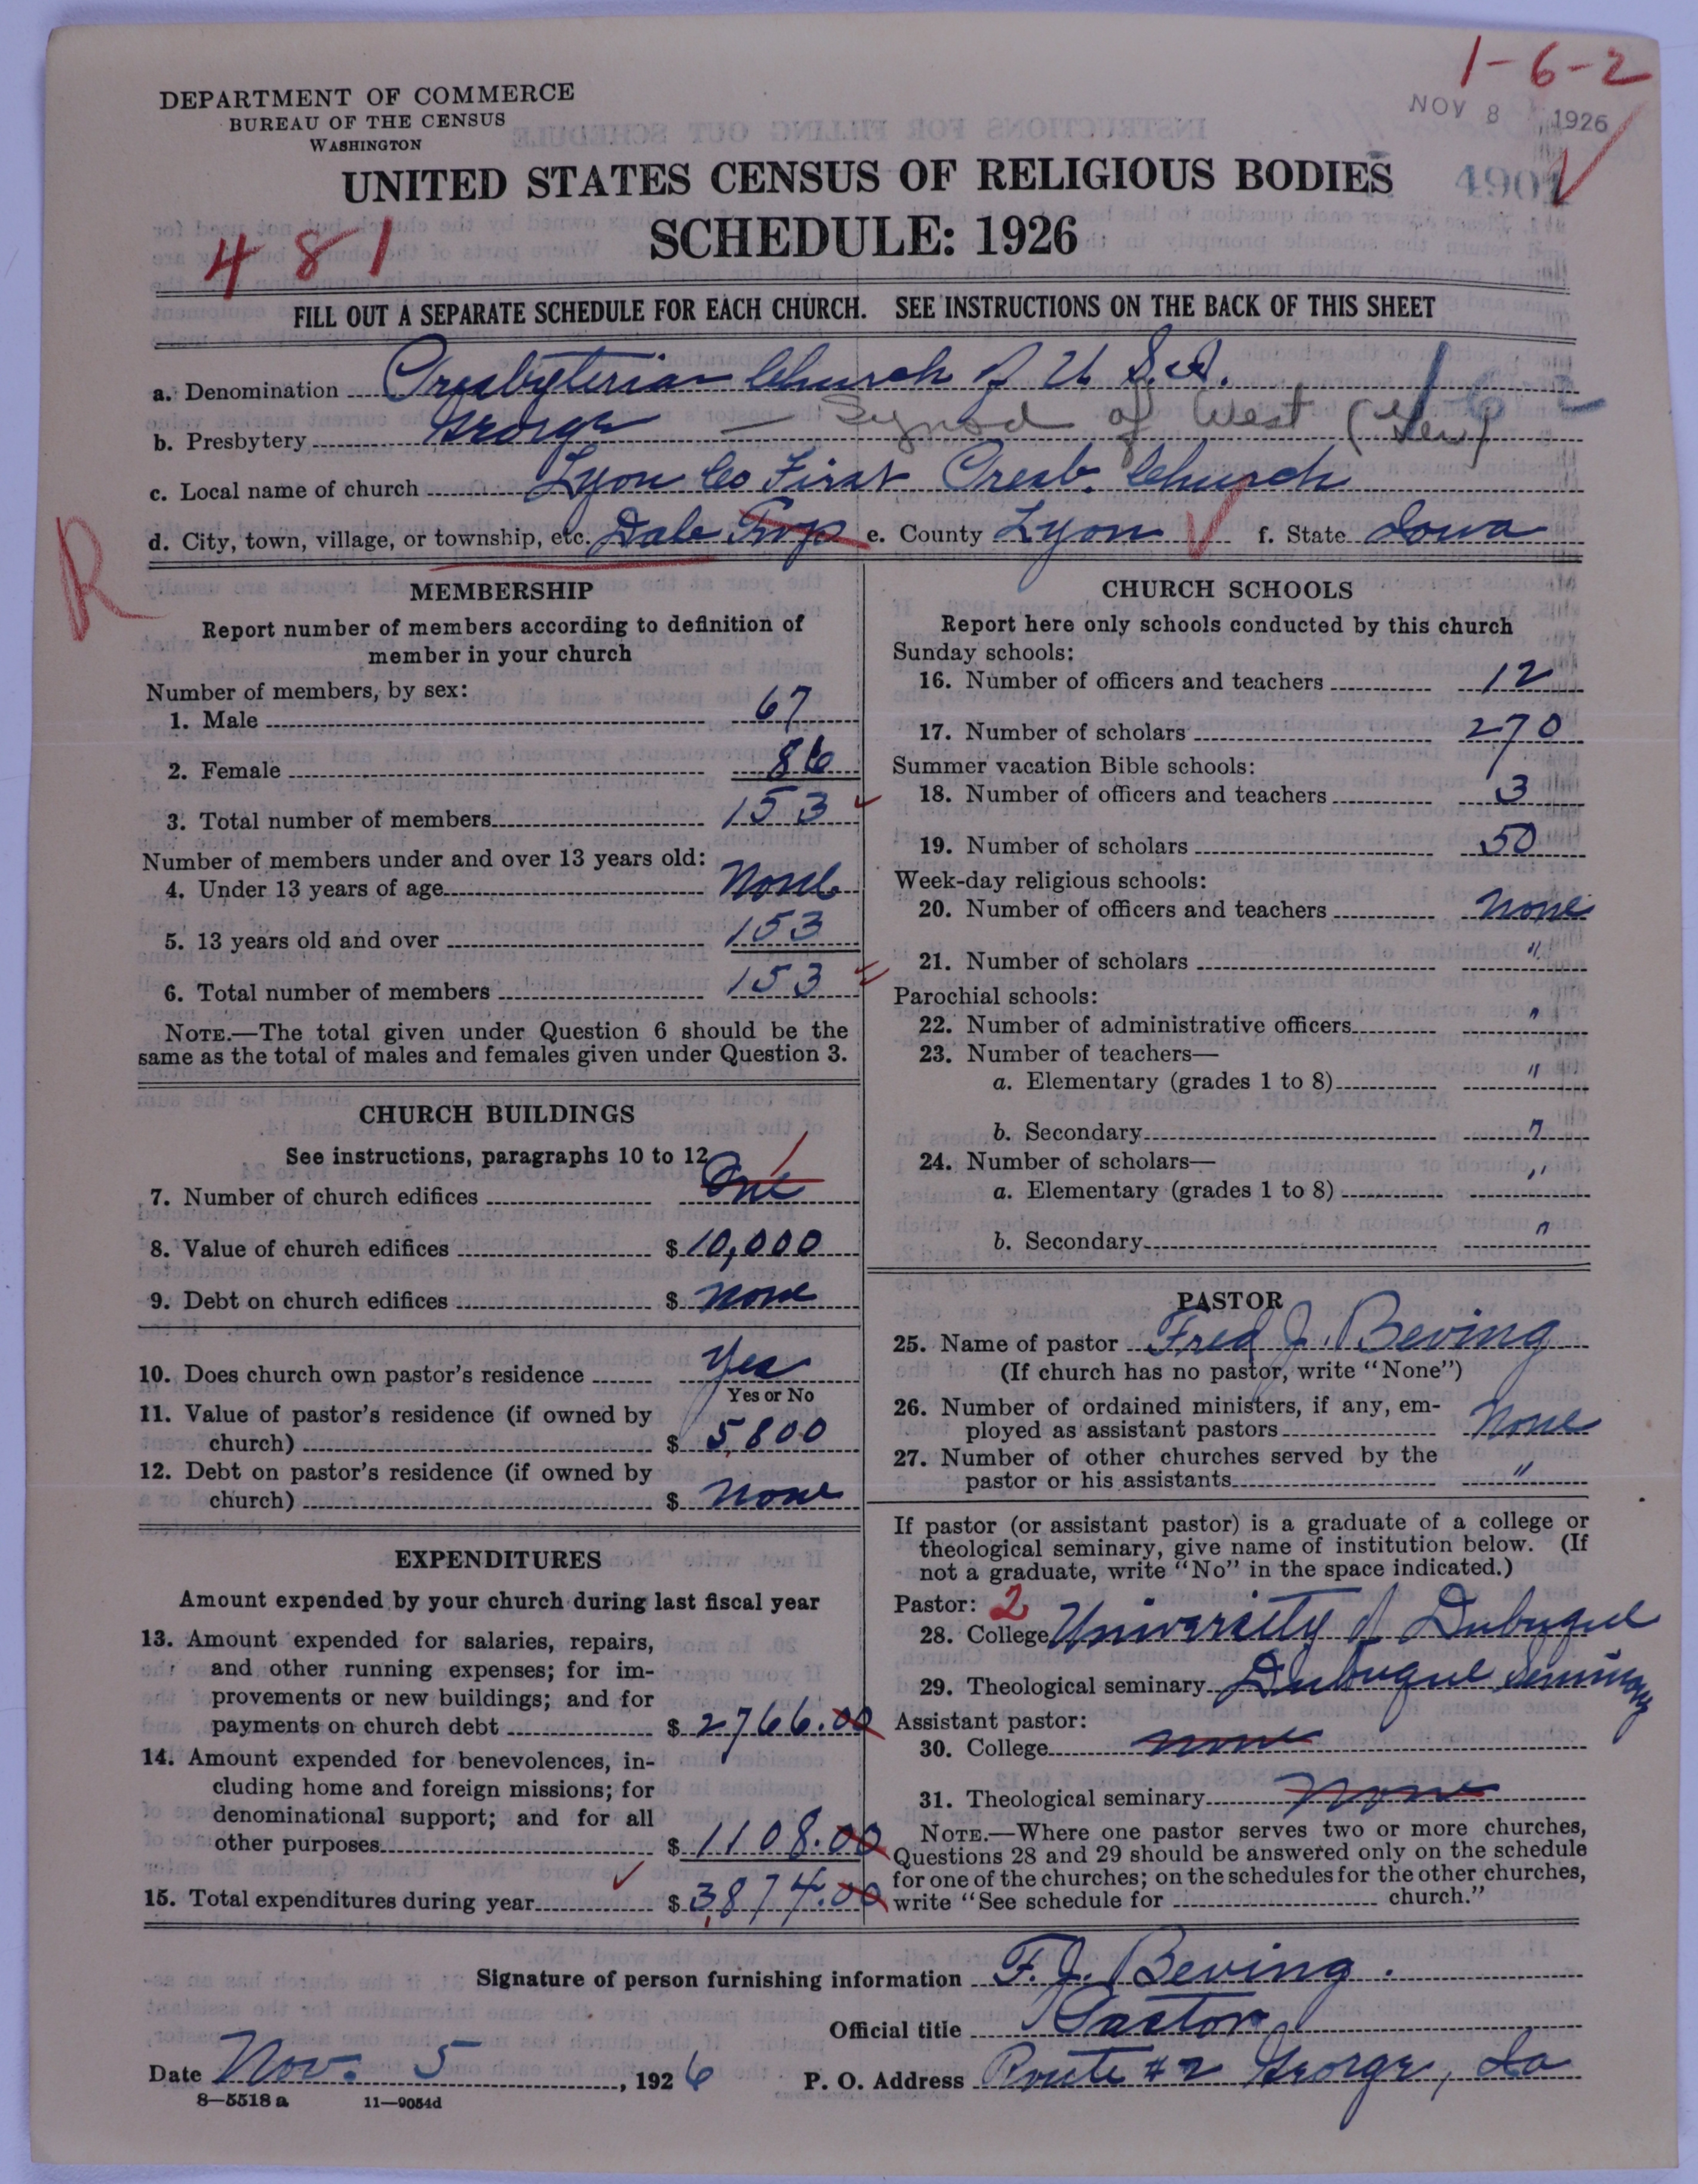 1-6-2
DEPARTMENT OF COMMERCE
BUREAU OF THE CENSUS
WASHINGTON
NOV 8 1926
UNITED STATES CENSUS OF RELIGIOUS BODIES
4901
SCHEDULE: 1926
481
FILL OUT A SEPARATE SCHEDULE FOR EACH CHURCH. SEE INSTRUCTIONS ON THE BACK OF THIS SHEET
a. Denomination Presbyterian Church of U.S.A.
b. Presbytery George — Synod of West (Ger)
c. Local name of church Lyon Co First Presb. Church
d. City, town, village, or township, etc. Dale Twp e. County Lyon f. State Iowa
R
MEMBERSHIP
Report number of members according to definition of
member in your church
Number of members, by sex:
1. Male 67
2. Female 86
3. Total number of members 153
Number of members under and over 13 years old:
4. Under 13 years of age None
5. 13 years old and over 153
6. Total number of members 153
NOTE.—The total given under Question 6 should be the
same as the total of males and females given under Question 3.
CHURCH BUILDINGS
See instructions, paragraphs 10 to 12
7. Number of church edifices One 1
8. Value of church edifices $ 10,000
9. Debt on church edifices $ None
10. Does church own pastor's residence Yes
Yes or No
11. Value of pastor's residence (if owned by
church) $ 5,800
12. Debt on pastor's residence (if owned by
church) $ None
EXPENDITURES
Amount expended by your church during last fiscal year
13. Amount expended for salaries, repairs,
and other running expenses; for im-
provements or new buildings; and for
payments on church debt $ 2766.00
14. Amount expended for benevolences, in-
cluding home and foreign missions; for
denominational support; and for all
other purposes $ 1108.00
15. Total expenditures during year $ 3,874.00
CHURCH SCHOOLS
Report here only schools conducted by this church
Sunday schools:
16. Number of officers and teachers 12
17. Number of scholars 270
Summer vacation Bible schools:
18. Number of officers and teachers 3
19. Number of scholars 50
Week-day religious schools:
20. Number of officers and teachers None
21. Number of scholars "
Parochial schools:
22. Number of administrative officers "
23. Number of teachers—
a. Elementary (grades 1 to 8) "
b. Secondary "
24. Number of scholars—
a. Elementary (grades 1 to 8) "
b. Secondary "
PASTOR
25. Name of pastor Fred J. Beving
(If church has no pastor, write "None")
26. Number of ordained ministers, if any, em-
ployed as assistant pastors None
27. Number of other churches served by the
pastor or his assistants "
If pastor (or assistant pastor) is a graduate of a college or
theological seminary, give name of institution below. (If
not a graduate, write "No" in the space indicated.)
Pastor: 2
28. College University of Dubuque
29. Theological seminary Dubuque Seminary
Assistant pastor:
30. College None
31. Theological seminary None
NOTE.—Where one pastor serves two or more churches,
Questions 28 and 29 should be answered only on the schedule
for one of the churches; on the schedules for the other churches,
write "See schedule for church."
Signature of person furnishing information F. J. Beving.
Official title Pastor
Date Nov. 5, 1926 P. O. Address Route #2 George, Ia
8—5518 a 11—9054d